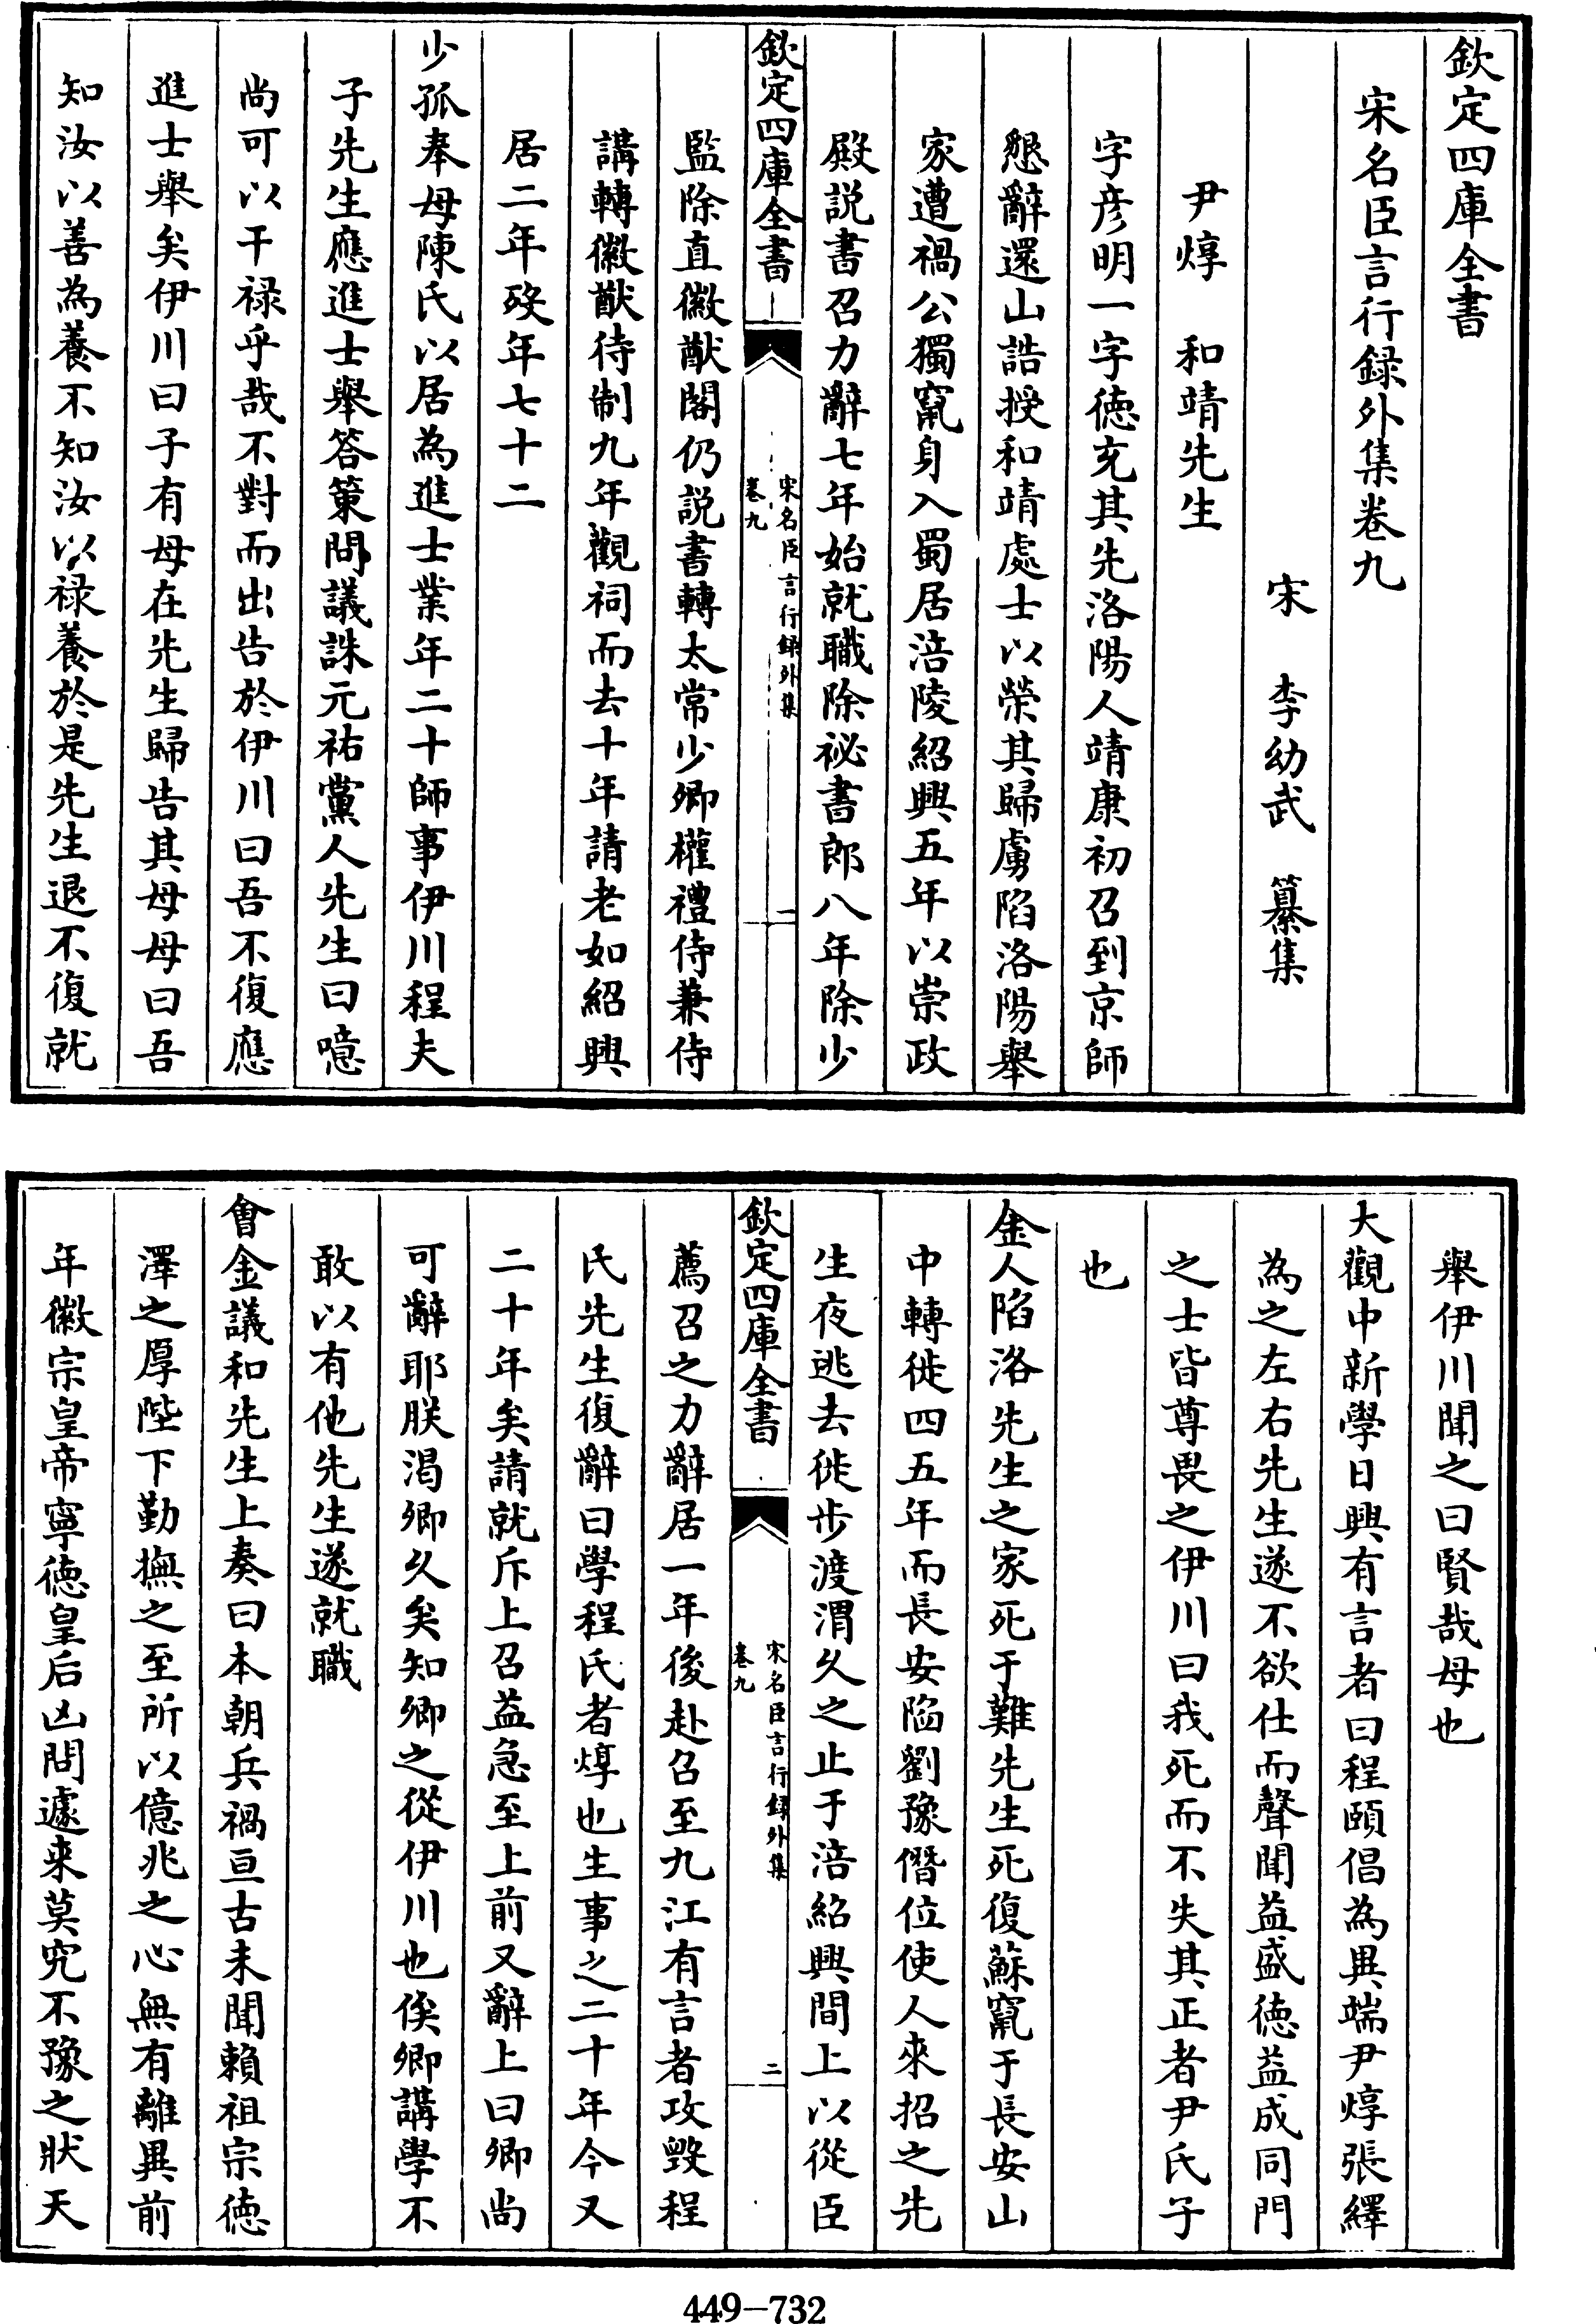 欽定四庫全書
宋名臣言行録外集卷九
宋 李幼武 纂集
尹焞 和靖先生
字彦明一字徳充其先洛陽人靖康初召到京師
懇辭還山誥授和靖處士以榮其歸虜陷洛陽舉
家遭禍公獨竄身入蜀居涪陵紹興五年以崇政
殿説書召力辭七年始就職除祕書郎八年除少
欽定四庫全書
宋名臣言行録外集
卷九
一
監除直徽猷閣仍説書轉太常少卿權禮侍兼侍
講轉徽猷待制九年觀祠而去十年請老如紹興
居二年歿年七十二
少孤奉母陳氏以居為進士業年二十師事伊川程夫
子先生應進士舉答策問議誅元祐黨人先生曰噫
尚可以干禄乎哉不對而出告於伊川曰吾不復應
進士舉矣伊川曰子有母在先生歸告其母母曰吾
知汝以善為養不知汝以禄養於是先生退不復就
舉伊川聞之曰賢哉母也
大觀中新學日興有言者曰程頤倡為異端尹焞張繹
為之左右先生遂不欲仕而聲聞益盛徳益成同門
之士皆尊畏之伊川曰我死而不失其正者尹氏子
也
金人陷洛先生之家死于難先生死復蘇竄于長安山
中轉徙四五年而長安陷劉豫僭位使人來招之先
生夜逃去徙步渡渭久之止于涪紹興間上以從臣
欽定四庫全書
宋名臣言行録外集
卷九
二
薦召之力辭居一年後赴召至九江有言者攻毀程
氏先生復辭曰學程氏者焞也生事之二十年今又
二十年矣請就斥上召益急至上前又辭上曰卿尚
可辭耶朕渴卿久矣知卿之從伊川也俟卿講學不
敢以有他先生遂就職
會金議和先生上奏曰本朝兵禍亘古未聞賴祖宗徳
澤之厚陛下勤撫之至所以億兆之心無有離異前
年徽宗皇帝寧徳皇后凶問遽来莫究不豫之狀天
449-732